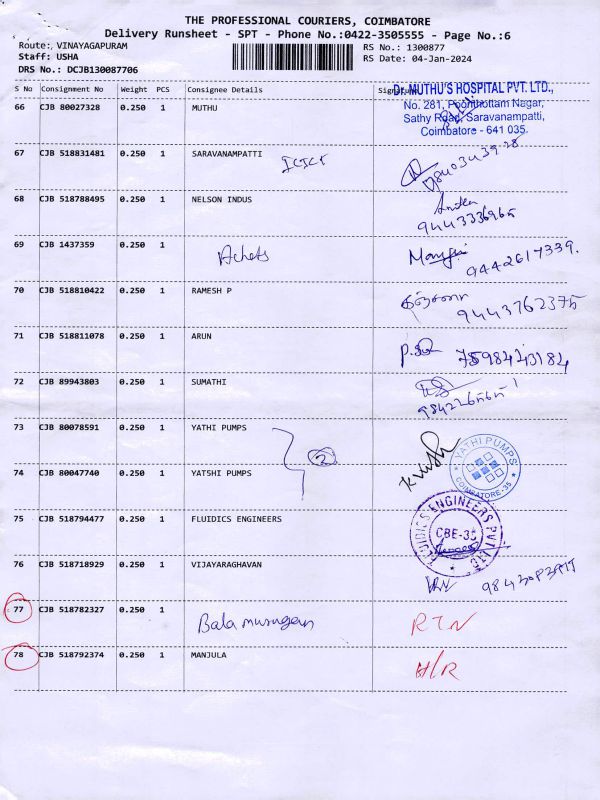 THE PROFESSIONAL COURIERS, COIMBATORE
Delivery Runsheet - SPT - Phone No.:0422-3505555 - Page No.:6
Route:, VINAYAGAPURAM
Staff: USHA
DRS No.: DCJB130087706
RS No.: 1300877
RS Date: 04-Jan-2024
S No Consignment No Weight PCS Consignee Details
66 CJB 80027328 0.250 1 MUTHU
Dr. MUTHU'S HOSPITAL PVT. LTD.,
No. 281, Poonthottam Nagar,
Sathy Road, Saravanampatti,
Coimbatore - 641 035.
67 CJB 518831481 0.250 1 SARAVANAMPATTI ICICI
68 CJB 518788495 0.250 1 NELSON INDUS
9443336965
69 CJB 1437359 0.250 1 9442617339.
70 CJB 518810422 0.250 1 RAMESH P 9443762375
71 CJB 518811078 0.250 1 ARUN 7598423184
72 CJB 89943803 0.250 1 SUMATHI
73 CJB 80078591 0.250 1 YATHI PUMPS
2
YATHI PUMPS
COIMBATORE-35
74 CJB 80047740 0.250 1 YATSHI PUMPS
75 CJB 518794477 0.250 1 FLUIDICS ENGINEERS
FLUIDICS ENGINEERS PVT LTD.
CBE-35
76 CJB 518718929 0.250 1 VIJAYARAGHAVAN
77 CJB 518782327 0.250 1 Balamurugan RTN
78 CJB 518792374 0.250 1 MANJULA H/R